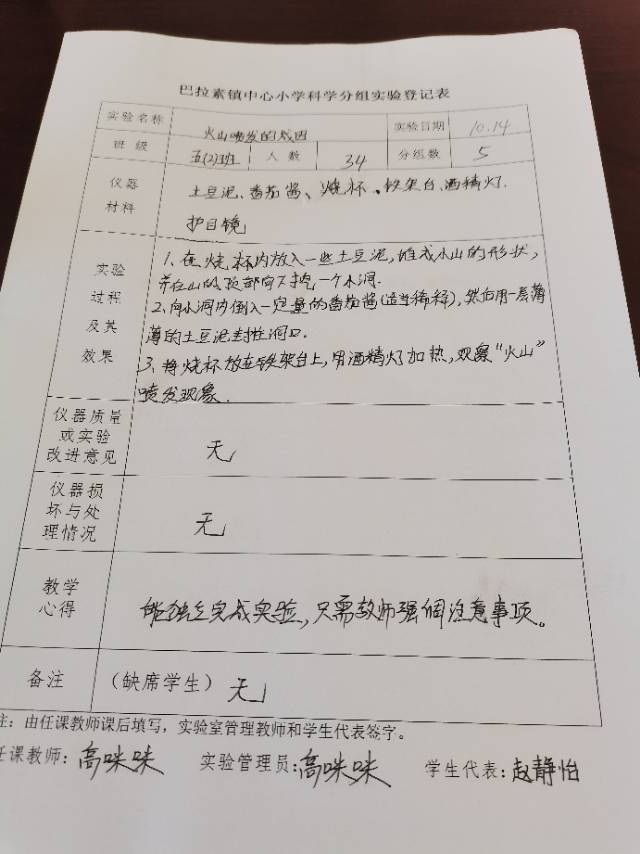 巴拉素镇中心小学科学分组实验登记表
实验名称 火山喷发的成因 实验日期 10.14
班级 五(2)班 人数 34 分组数 5
仪器材料 土豆泥、番茄酱、烧杯、铁架台、酒精灯、
护目镜
实验过程及其效果
1、在烧杯内放入一些土豆泥,堆成小山的形状,
并在山的顶部向下挖一个小洞.
2、向小洞内倒入一定量的番茄酱(适当稀释),然后用一层薄
薄的土豆泥封住洞口.
3、将烧杯放在铁架台上,用酒精灯加热,观察“火山”
喷发现象.
仪器质量或实验改进意见 无
仪器损坏与处理情况 无
教学心得 能独立完成实验,只需教师强调注意事项。
备注 (缺席学生) 无
注:由任课教师课后填写,实验室管理教师和学生代表签字。
任课教师:高咪咪 实验管理员:高咪咪 学生代表:赵静怡